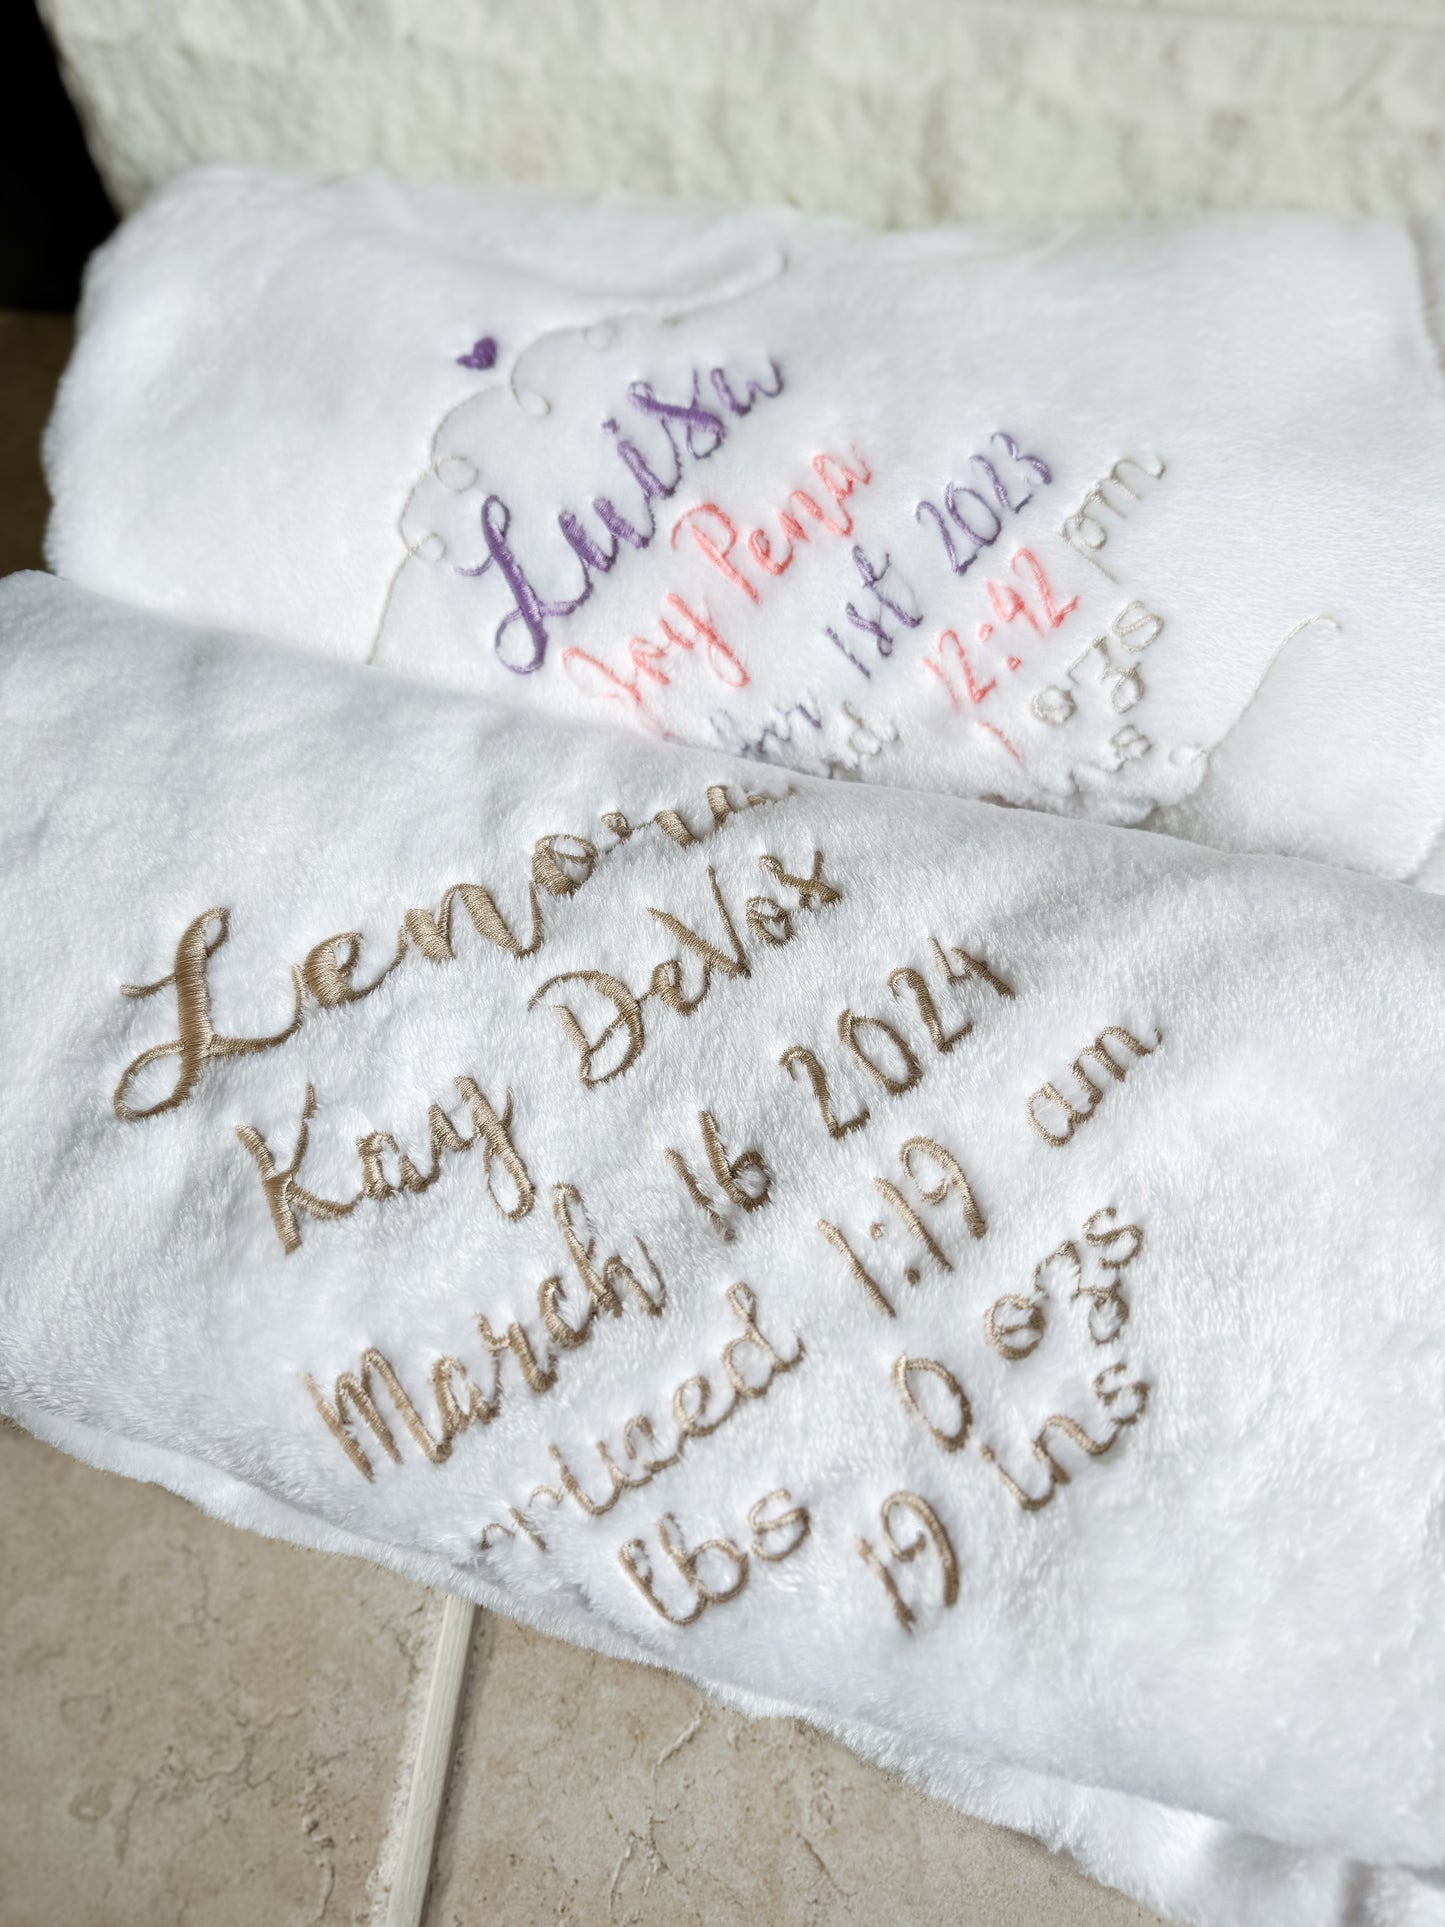 Luisa
Joy Pena
1st 2023
12:42 pm
ozs
Kay DeVox
March 16 2024
1:19 am
lbs 0 ozs
19 ins